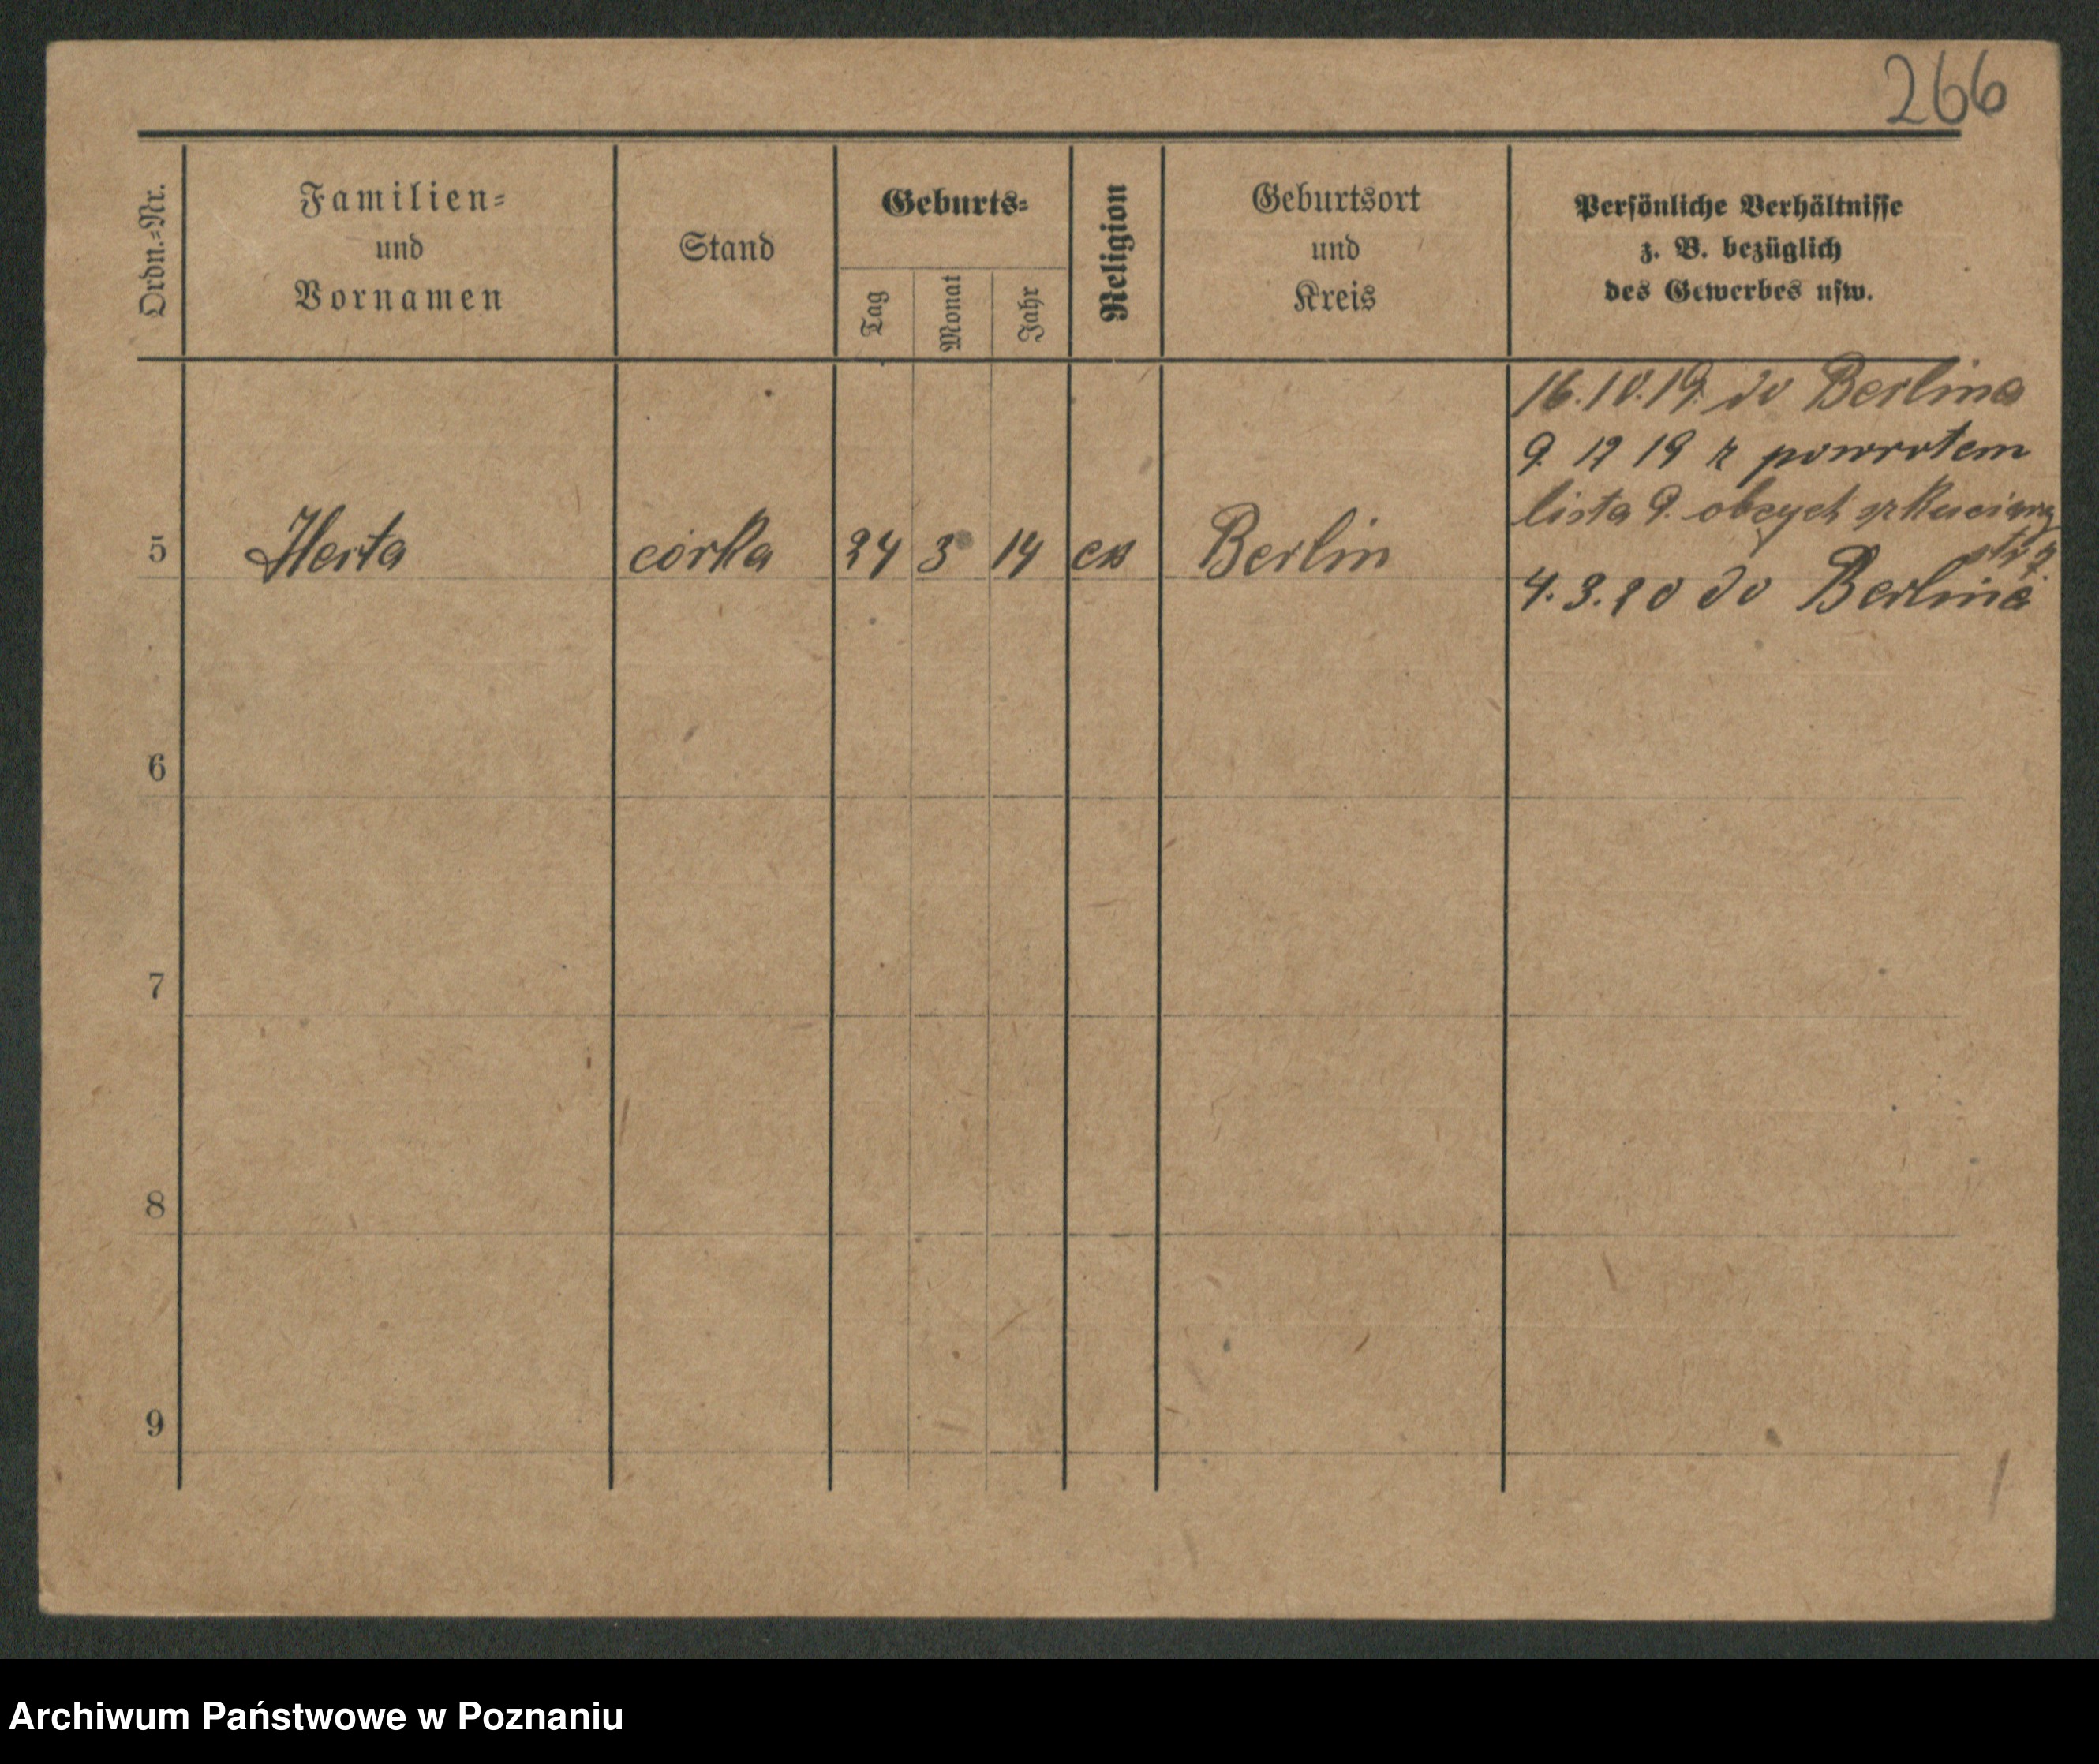 266
Ordn.-Nr.
Familien-
und
Vornamen
Stand
Geburts-
Tag
Monat
Jahr
Religion
Geburtsort
und
Kreis
Persönliche Verhältnisse
z. B. bezüglich
des Gewerbes usw.
16.10.19. do Berlina
9 12 19 z powrotem
lista 9. obcych
5 Herta córka 24 3 14 ew Berlin
4.3.20 do Berlina
6
7
8
9
Archiwum Państwowe w Poznaniu